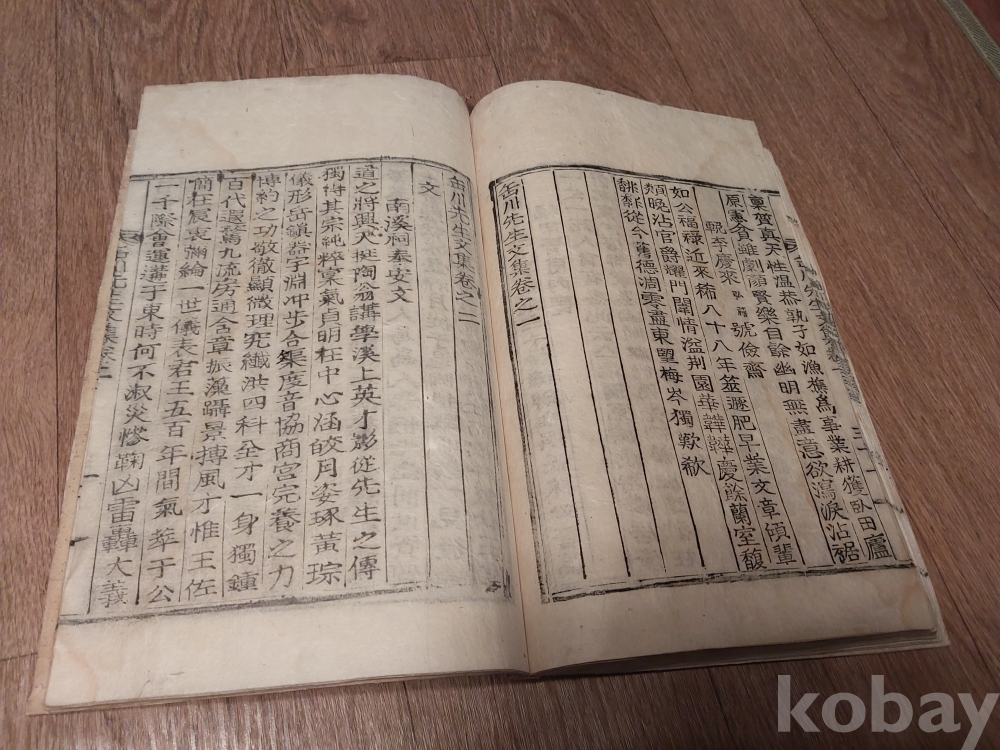 稟質真天性温恭孰子如漁樵爲事業耕獲臥田廬
原憲貧雖劇顔賢樂自餘幽明無盡意欲瀉淚沾裾
輓李慶來 弘 號儉齋
如公福祿近來稀八十八年筮遯肥早業文章傾輩
頰晩沾官爵耀門闈情溢荆園華韡韡慶餘蘭室馥
馡馡從今舊德凋零盡東望梅岑獨歎欷
缶川先生文集卷之一
缶川先生文集卷之二
文
南溪祠奉安文
道之將興天挺陶翁講學溪上英才影從先生之傳
獨得其宗純粹稟氣貞明在中心涵皎月姿琢黃琮
儀形岳鎭器宇淵冲步合集度音協商宮完養之力
博約之功敬徹顯微理究纖洪四科全才一身獨鍾
百代遐駕九流房通含章振藻躡景搏風才惟王佐
簡在宸衷彌綸一世儀表君王五百年間氣萃于公
一千際會運遘于東時何不淑災慘鞠凶雷轟大義
缶川先生文集卷二
kobay